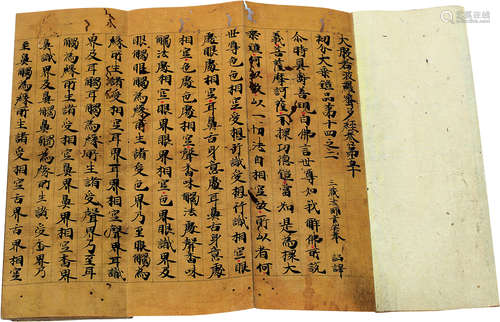 大般若波羅蜜多經卷第五十
初分大乘鎧品第十四之二
三藏法師玄奘奉 詔譯
尒時具壽善現白佛言世尊如我解佛所說
義菩薩摩訶薩不擐功德鎧當知是為擐大
乘鎧何以故以一切法自相空故所以者何
世尊色色相空受想行識受想行識相空眼
處眼處相空耳鼻舌身意處耳鼻舌身意處
相空色處色處相空聲香味觸法處聲香味
觸法處相空眼界眼界相空色界眼識界及
眼觸眼觸為緣所生諸受色界乃至眼觸為
緣所生諸受相空耳界耳界相空聲界耳識
界及耳觸耳觸為緣所生諸受聲界乃至耳
觸為緣所生諸受相空鼻界鼻界相空香界
鼻識界及鼻觸鼻觸為緣所生諸受香界乃
至鼻觸為緣所生諸受相空舌界舌界相空
易拍全球